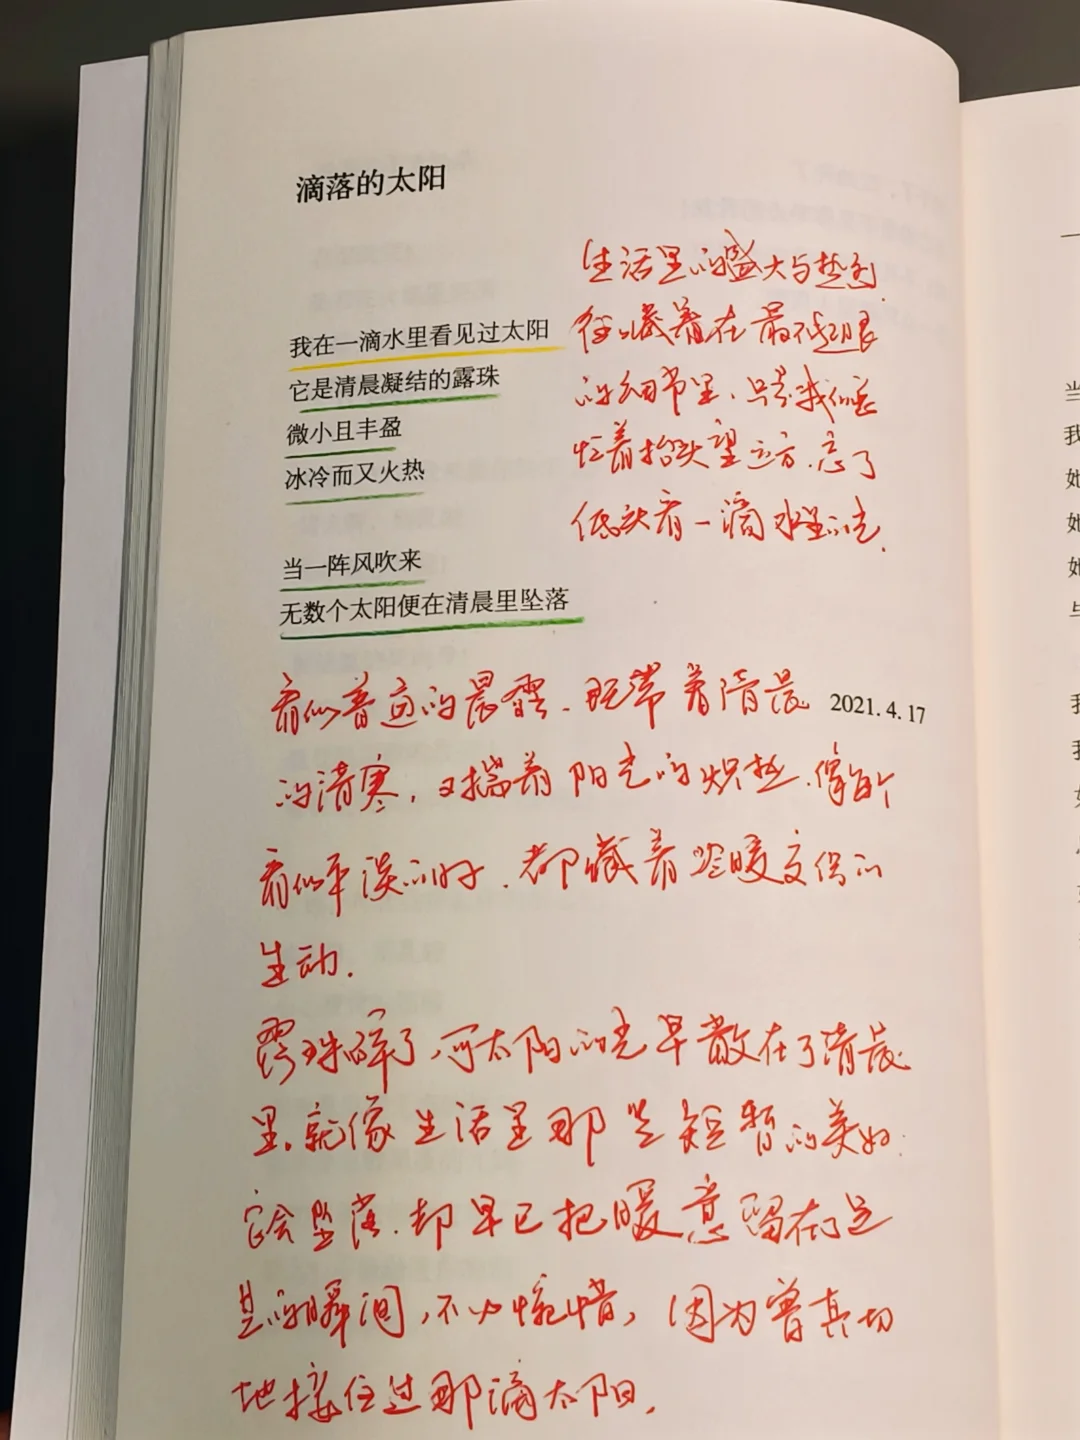 滴落的太阳
我在一滴水里看见过太阳
它是清晨凝结的露珠
微小且丰盈
冰冷而又火热
当一阵风吹来
无数个太阳便在清晨里坠落
2021.4.17
生活里的盛大与热烈
往往藏着在最不起眼
的细节里，只是我们总
忙着抬头望远方，忘了
低头看一滴水里的光。
看似普通的晨露，既带着清晨
的清寒，又揣着阳光的炽热，像每个
看似平淡的日子，都藏着冷暖交织的
生动。
露珠碎了，可太阳的光早散在了清晨
里，就像生活里那些短暂的美好
它会坠落，却早已把暖意留在了
的瞬间，不必惋惜，因为曾真切
地接住过那滴太阳。
当
我
她
她
她
与